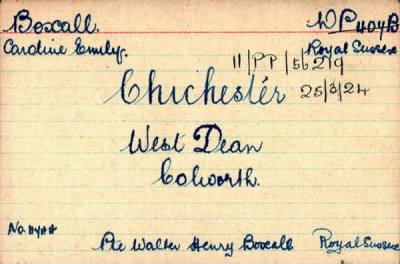 Boxall. WP404B
Caroline Emily. Royal Sussex
11/PP/5629
Chichester 25/3/24
West Dean
Colworth.
Pte Walter Henry Boxall Royal Sussex